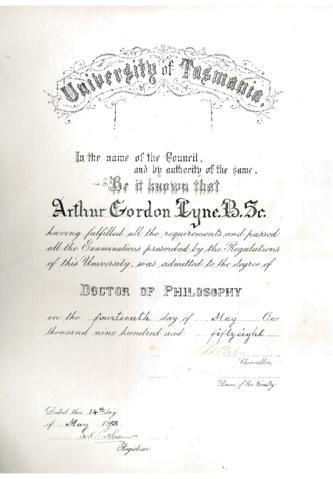 University of Tasmania.
In the name of the Council,
and by authority of the same,
Be it known that
Arthur Gordon Lyne, B. Sc.
having fulfilled all the requirements and passed
all the Examinations prescribed by the Regulations
of this University, was admitted to the degree of
DOCTOR OF PHILOSOPHY
on the fourteenth day of May One
thousand nine hundred and fifty eight
Chancellor
Dean of the Faculty
Dated this 14th day
of May 1958
Registrar